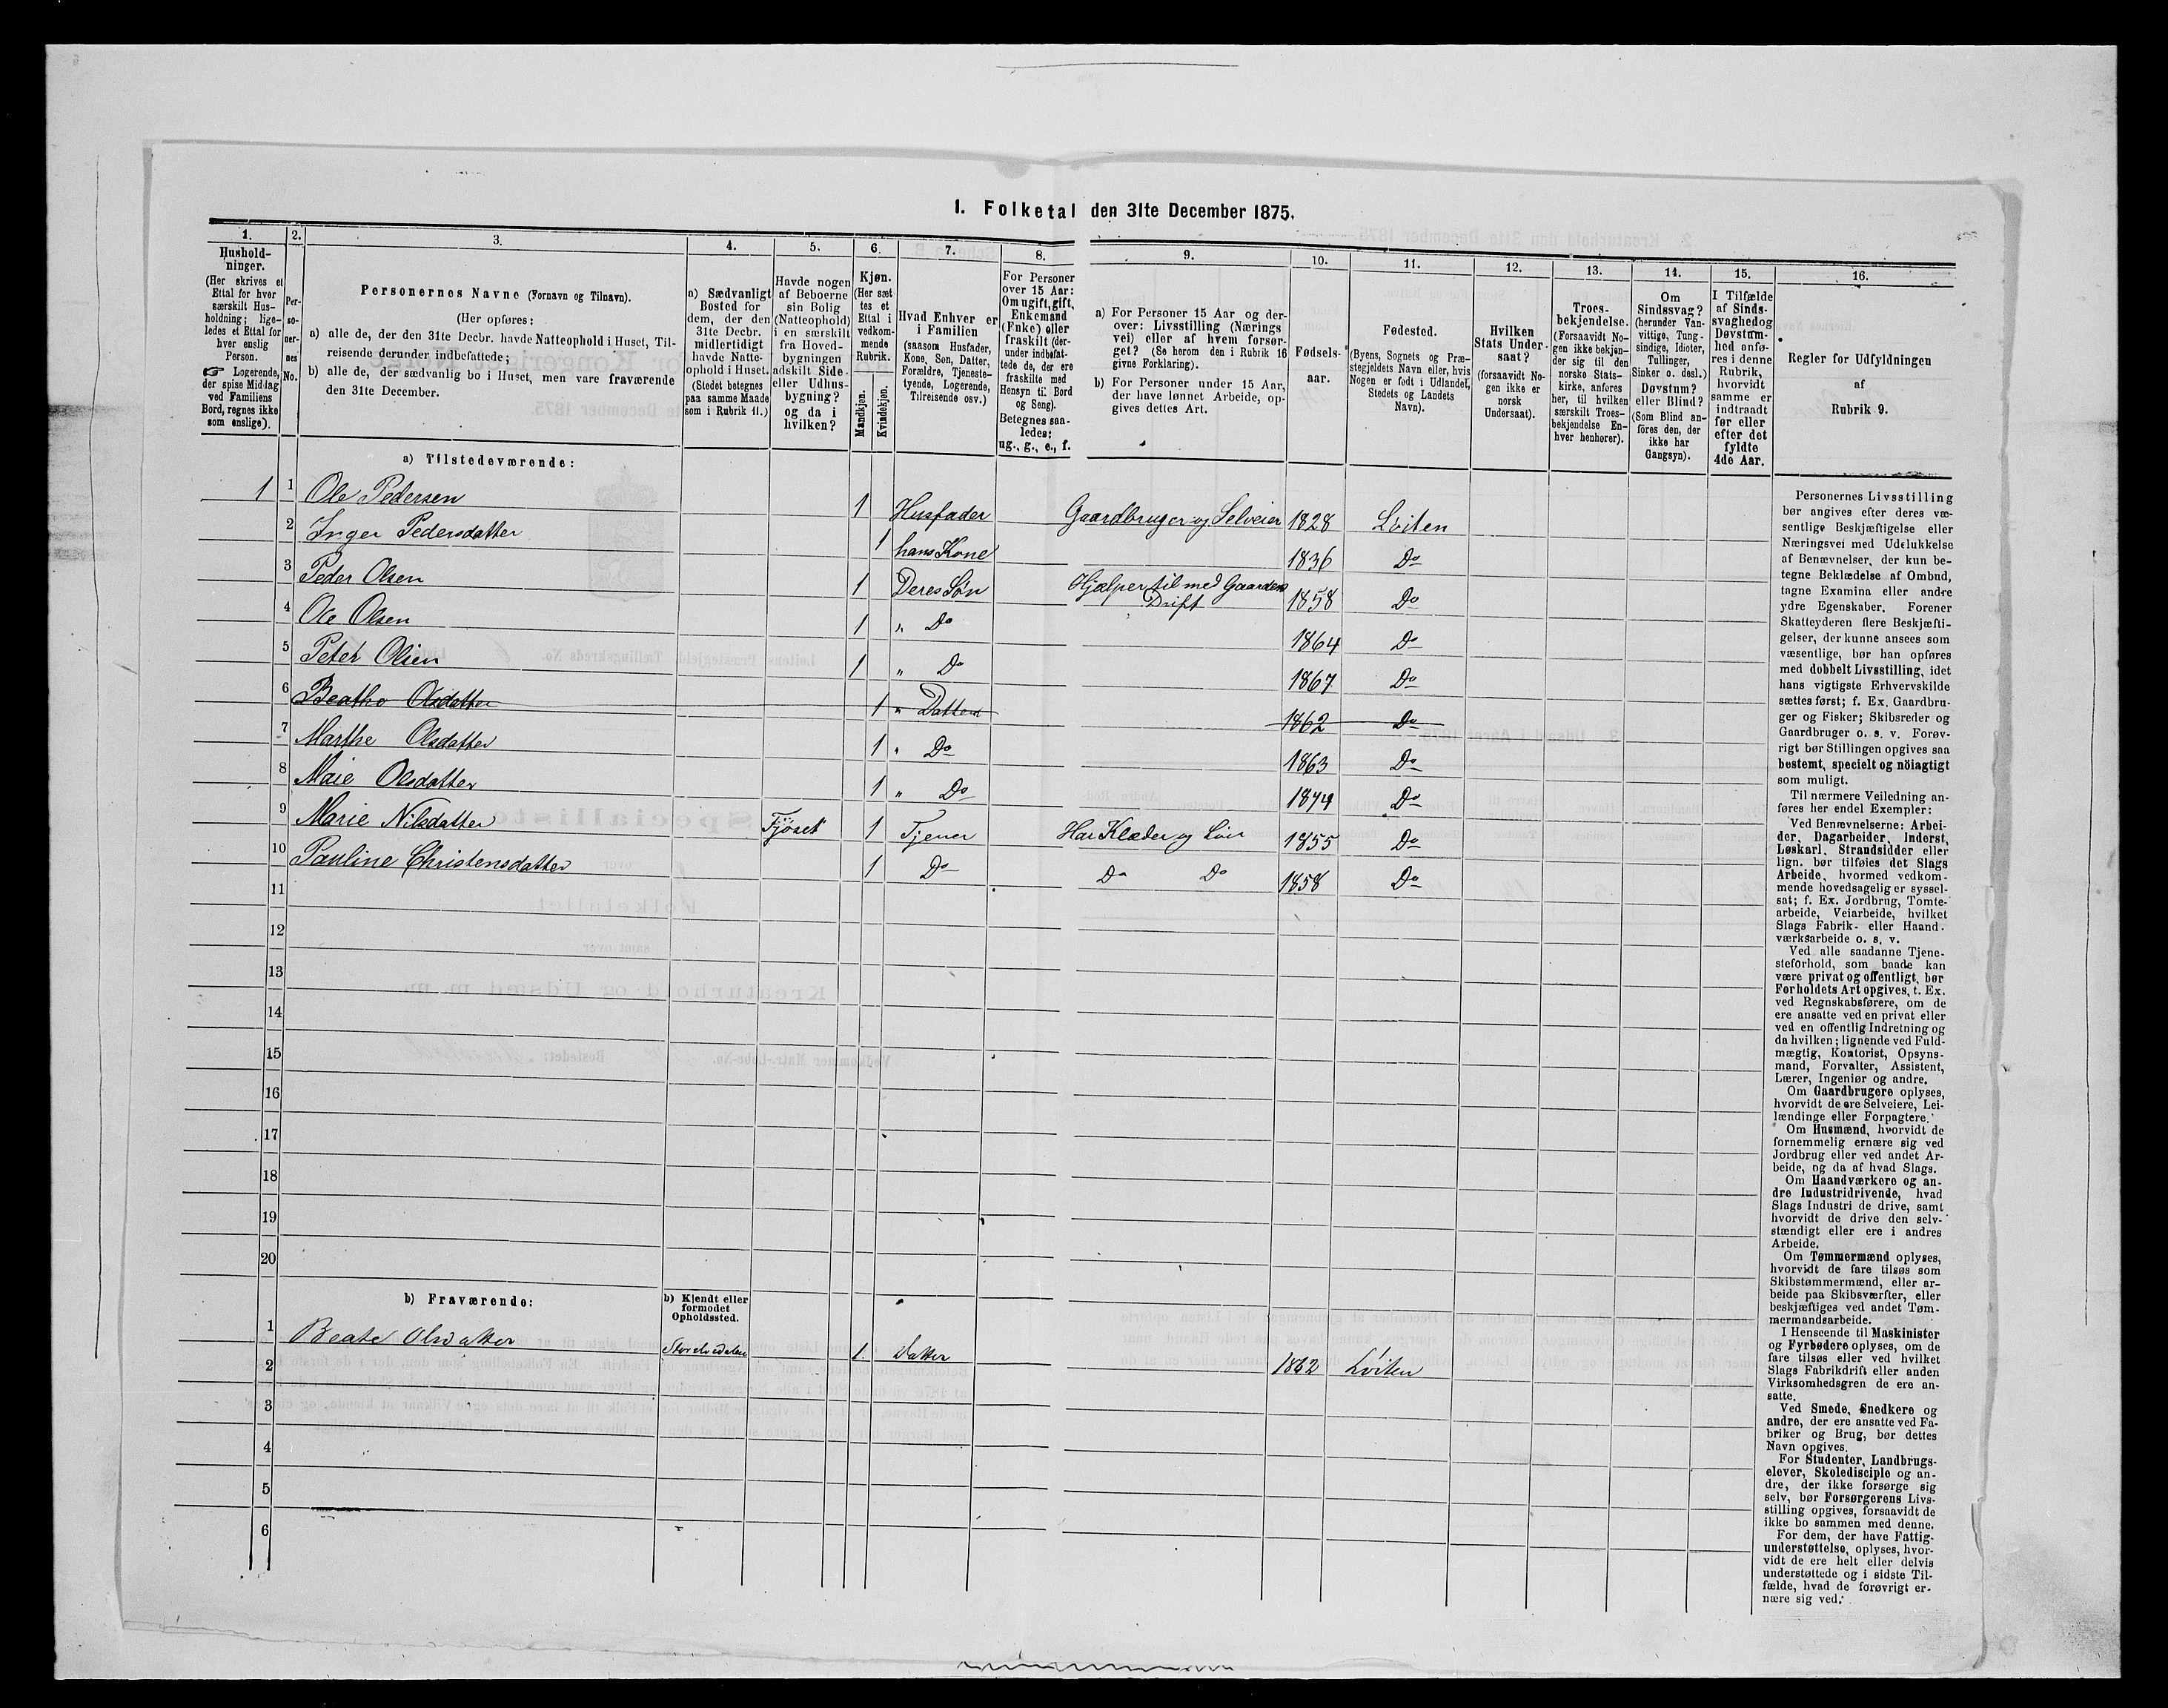 1. Folketal den 31te December 1875.
1. 2. 3. 4. 5. 6. 7. 8. 9. 10. 11. 12. 13. 14. 15. 16.
Hushold-
ninger.
(Her skrives et
Ettal for hver
særskilt Hus-
holdning; lige-
ledes et Ettal for
hver enslig
Person.
☞ Logerende,
der spise Middag
ved Familiens
Bord, regnes ikke
som enslige).
Per-
so-
ner-
nes
No.
Personernes Navne (Fornavn og Tilnavn).
(Her opføres:
a) alle de, der den 31te Decbr. havde Natteophold i Huset, Til-
reisende derunder indbefattede;
b) alle de, der sædvanlig bo i Huset, men vare fraværende
den 31te December.
a) Sædvanligt
Bosted for
dem, der den
31te Decbr.
midlertidigt
havde Natte-
ophold i Huset.
(Stedet betegnes
paa samme Maade
som i Rubrik 11.)
Havde nogen
af Beboerne
sin Bolig
(Natteophold)
i en særskilt
fra Hoved-
bygningen
adskilt Side-
eller Udhus-
bygning?
og da i
hvilken?
Kjøn.
(Her sæt
tes et
Ettal i
vedkom-
mende
Rubrik.
Mandkjøn.
Kvindekjøn.
Hvad Enhver er
i Familien
(saasom Husfader,
Kone, Søn, Datter,
Forældre, Tjeneste-
tyende, Logerende,
Tilreisende osv.)
For Personer
over 15 Aar:
Om ugift, gift,
Enkemand
(Enke) eller
fraskilt (der-
under indbefat-
tede de, der ere
fraskilte med
Hensyn til Bord
og Seng).
Betegnes saa-
ledes:
ug., g., e., f.
a) For Personer 15 Aar og der-
over: Livsstilling (Nærings
vei) eller af hvem forsør-
get? (Se herom den i Rubrik 16
givne Forklaring).
b) For Personer under 15 Aar,
der have lønnet Arbeide, op-
gives dettes Art.
Fødsels-
aar.
Fødested.
(Byens, Sognets og Præ-
stegjeldets Navn eller, hvis
Nogen er født i Udlandet,
Stedets og Landets
Navn).
Hvilken
Stats Under-
saat?
(forsaavidt No-
gen ikke er
norsk
Undersaat).
Troes-
bekjendelse.
(Forsaavidt No-
gen ikke bekjen-
der sig til den
norske Stats-
kirke, anføres
her, til hvilken
særskilt Troes-
bekjendelse En-
hver henhører).
Om
Sindssvag?
(herunder Van-
vittige, Tung-
sindige, Idioter,
Tullinger,
Sinker o. desl.)
Døvstum?
eller Blind?
(Som Blind an-
føres den, der
ikke har
Gangsyn).
I Tilfælde
af Sinds-
svaghed og
Døvstum-
hed anfø-
res i denne
Rubrik,
hvorvidt
samme er
indtraadt
før eller
efter det
fyldte
4de Aar.
Regler for Udfyldningen
af
Rubrik 9.
a) Tilstedeværende:
1 1 Ole Pedersen 1 Husfader Gaardbruger og Selveier 1828 Løiten
2 Inger Pedersdatter 1 hans Kone 1836 Do
3 Peder Olsen 1 Deres Søn Hjælper til med Gaardens
Drift 1858 Do
4 Ole Olsen 1 „ Do 1864 Do
5 Peter Olsen 1 „ Do 1867 Do
6 Beathe Olsdatter 1 „ Datter 1862 Do
7 Marthe Olsdatter 1 „ Do 1863 Do
8 Maie Olsdatter 1 „ Do 1874 Do
9 Marie Nilsdatter Fjøset 1 Tjener Har Klæder og Løn 1855 Do
10 Pauline Christensdatter 1 Do Do Do 1858 Do
11
12
13
14
15
16
17
18
19
20
b) Fraværende:
b) Kjendt eller
formodet
Opholdssted.
1 Beate Olsdatter Storelvedalen 1. Datter 1862 Løiten
2
3
4
5
6
Personernes Livsstilling
bør angives efter deres væ-
sentlige Beskjæftigelse eller
Næringsvei med Udelukkelse
af Benævnelser, der kun be-
tegne Beklædelse af Ombud,
tagne Examina eller andre
ydre Egenskaber. Forener
Skatteyderen flere Beskjæfti-
gelser, der kunne ansees som
væsentlige, bør han opføres
med dobbelt Livsstilling, idet
hans vigtigste Erhvervskilde
sættes først; f. Ex. Gaardbru-
ger og Fisker; Skibsreder og
Gaardbruger o. s. v. Forøv-
rigt bør Stillingen opgives saa
bestemt, specielt og nöiagtigt
som muligt.
Til nærmere Veiledning an-
føres her endel Exempler:
Ved Benævnelserne: Arbei-
der, Dagarbeider, Inderst,
Løskarl, Strandsidder eller
lign. bør tilføies det Slags
Arbeide, hvormed vedkom-
mende hovedsagelig er syssel-
sat; f. Ex. Jordbrug, Tomte-
arbeide, Veiarbeide, hvilket
Slags Fabrik- eller Haand-
værksarbeide o. s. v.
Ved alle saadanne Tjene-
steforhold, som baade kan
være privat og offentligt, bør
Forholdets Art opgives, t. Ex.
ved Regnskabsførere, om de
ere ansatte ved en privat eller
ved en offentlig Indretning og
da hvilken; lignende ved Fuld-
mægtig, Kontorist, Opsyns-
mand, Forvalter, Assistent,
Lærer, Ingeniør og andre.
Om Gaardbrugere oplyses,
hvorvidt de ere Selveiere, Lei-
lændinge eller Forpagtere.
Om Husmænd, hvorvidt de
fornemmelig ernære sig ved
Jordbrug eller ved andet Ar-
beide, og da af hvad Slags.
Om Haandværkere og an-
dre Industridrivende, hvad
Slags Industri de drive, samt
hvorvidt de drive den selv-
stændigt eller ere i andres
Arbeide.
Om Tømmermænd oplyses,
hvorvidt de fare tilsøs som
Skibstømmermænd, eller ar-
beide paa Skibsværfter, eller
beskjæftiges ved andet Tøm-
mermandsarbeide.
I Henseende til Maskinister
og Fyrbødere oplyses, om de
fare tilsøs eller ved hvilket
Slags Fabrikdrift eller anden
Virksomhedsgren de ere an-
satte.
Ved Smede, Snedkere og
andre, der ere ansatte ved Fa-
briker og Brug, bør dettes
Navn opgives.
For Studenter, Landbrugs-
elever, Skoledisciple og an-
dre, der ikke forsørge sig
selv, bør Forsørgerens Livs-
stilling opgives, forsaavidt de
ikke bo sammen med denne.
For dem, der have Fattig-
understøttelse, oplyses, hvor-
vidt de ere helt eller delvis
understøttede og i sidste Til-
fælde, hvad de forøvrigt er-
nære sig ved.